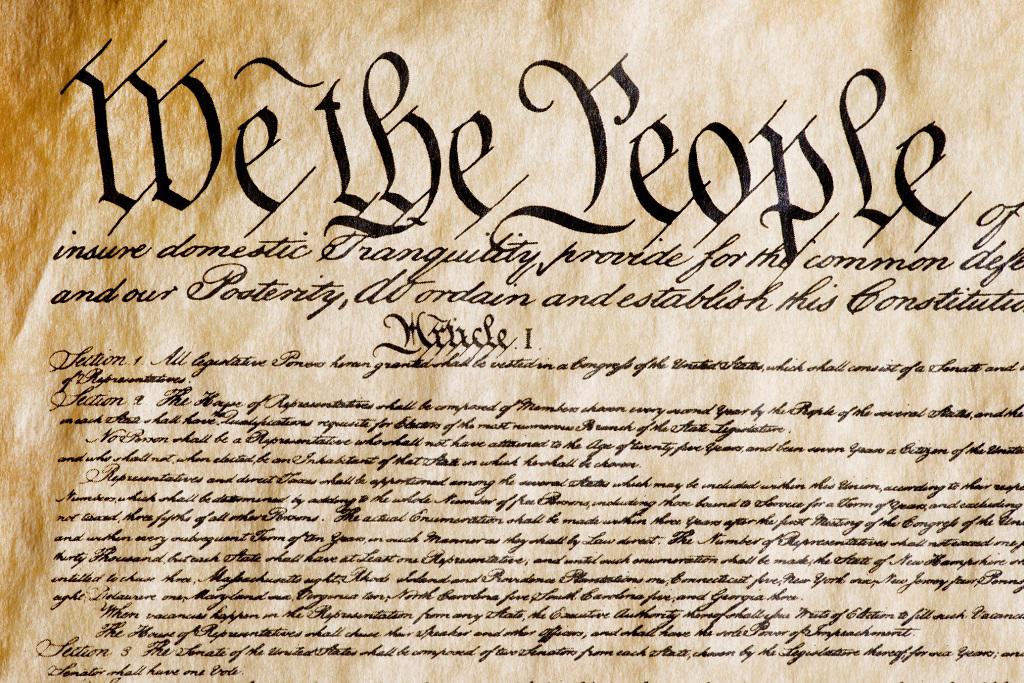 We the People of
insure domestic Tranquility, provide for the common defe
and our Posterity, do ordain and establish this Constitutio
Article. I.
Section. 1 All legislative Powers herein granted shall be vested in a Congress of the United States, which shall consist of a Senate and
of Representatives.
Section. 2 The House of Representatives shall be composed of Members chosen every second Year by the People of the several States, and the
in each State shall have the Qualifications requisite for Electors of the most numerous Branch of the State Legislature.
No Person shall be a Representative who shall not have attained to the Age of twenty five Years, and been seven Years a Citizen of the United
and who shall not, when elected, be an Inhabitant of that State in which he shall be chosen.
Representatives and direct Taxes shall be apportioned among the several States which may be included within this Union, according to their respec
Numbers, which shall be determined by adding to the whole Number of free Persons, including those bound to Service for a Term of Years, and excluding
not taxed, three fifths of all other Persons. The actual Enumeration shall be made within three Years after the first Meeting of the Congress of the Uni
and within every subsequent Term of ten Years, in such Manner as they shall by Law direct. The Number of Representatives shall not exceed one f
thirty Thousand, but each State shall have at Least one Representative; and until such enumeration shall be made, the State of New Hampshire s
entitled to chuse three, Massachusetts eight, Rhode Island and Providence Plantations one, Connecticut five, New York six, New Jersey four, Penns
eight, Delaware one, Maryland six, Virginia ten, North Carolina five, South Carolina five, and Georgia three.
When vacancies happen in the Representation from any State, the Executive Authority thereof shall issue Writs of Election to fill such Vacanci
The House of Representatives shall chuse their Speaker and other Officers; and shall have the sole Power of Impeachment.
Section 3 The Senate of the United States shall be composed of two Senators from each State, chosen by the Legislature thereof, for six Years; an
Senator shall have one Vote.